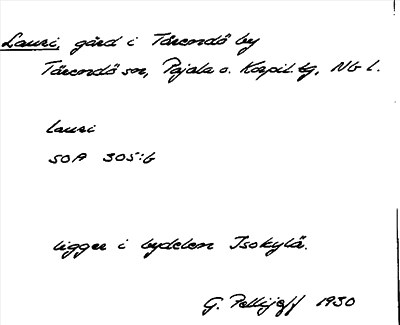 Lauri, gård i Tärendö by
Tärendö sn, Pajala o. Korpil. tg, Nb l.
lauri
SOA 305:6
ligger i bydelen Isokylä.
G. Pellijeff 1930